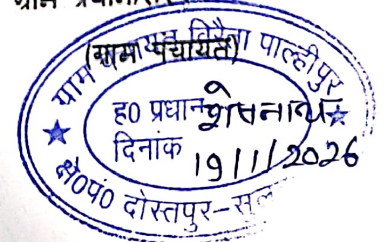 (ग्राम पंचायत)
ग्राम पंचायत विरैता पाल्हीपुर
ह० प्रधान शेषनाथ
दिनांक 19/1/2026
क्षे०पं० दोस्तपुर-सुल